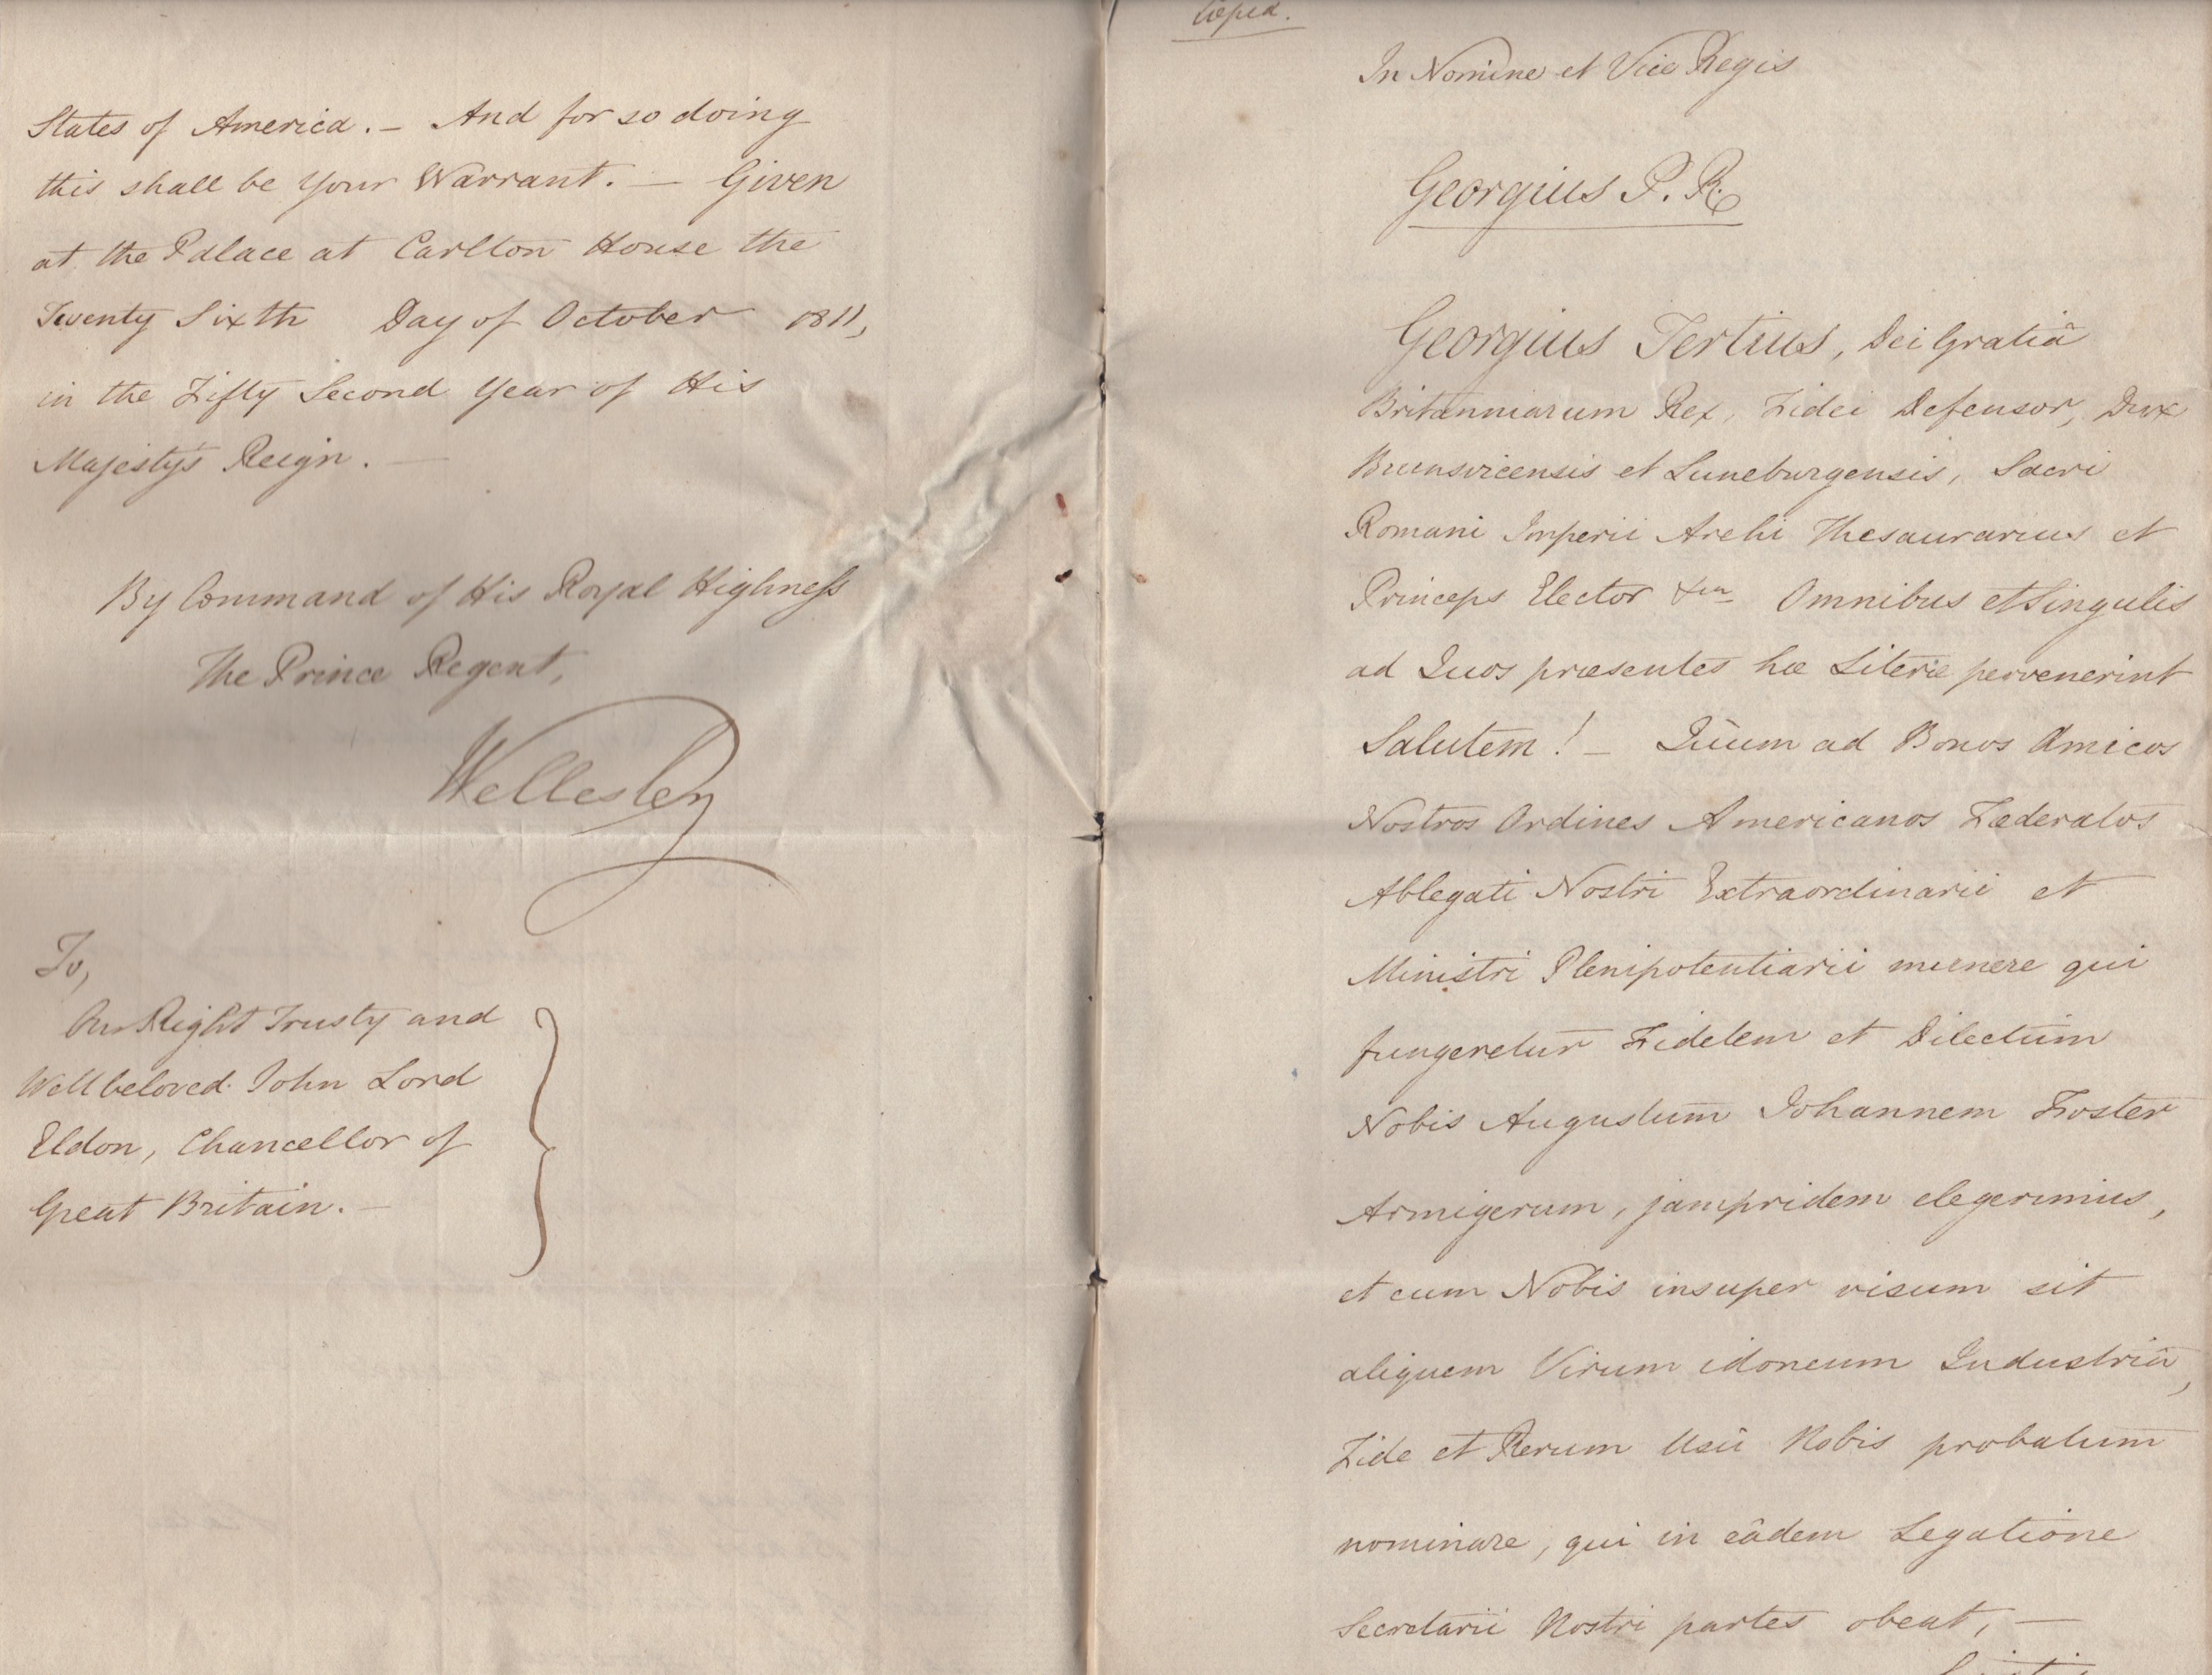 States of America. – And for so doing
this shall be Your Warrant. – Given
at the Palace at Carlton House the
Twenty Sixth Day of October 1811,
in the Fifty Second Year of His
Majesty's Reign. –
By Command of His Royal Highness
The Prince Regent,
Wellesley
To,
Our Right Trusty and
Wellbeloved John Lord
Eldon, Chancellor of
Great Britain. –
In Nomine et Vice Regis
Georgius P. R.
Georgius Tertius, Dei Gratiâ
Britanniarum Rex, Fidei Defensor, Dux
Brunsvicensis et Luneburgensis, Sacri
Romani Imperii Archi Thesaurarius et
Princeps Elector &ca Omnibus et Singulis
ad Quos præsentes hæ Literæ pervenerint
Salutem! – Quum ad Bonos Amicos
Nostros Ordines Americanos Fæderatos
Ablegati Nostri Extraordinarii et
Ministri Plenipotentiarii munere qui
fungeretur Fidelem et Dilectum
Nobis Augustum Johannem Foster
Armigerum, jampridem elegerimus,
et cum Nobis insuper visum sit
aliquem Virum idoneum Industriâ,
Fide et Rerum Usû Nobis probatum
nominare, qui in eâdem Legatione
Secretarii Nostri partes obeat, –